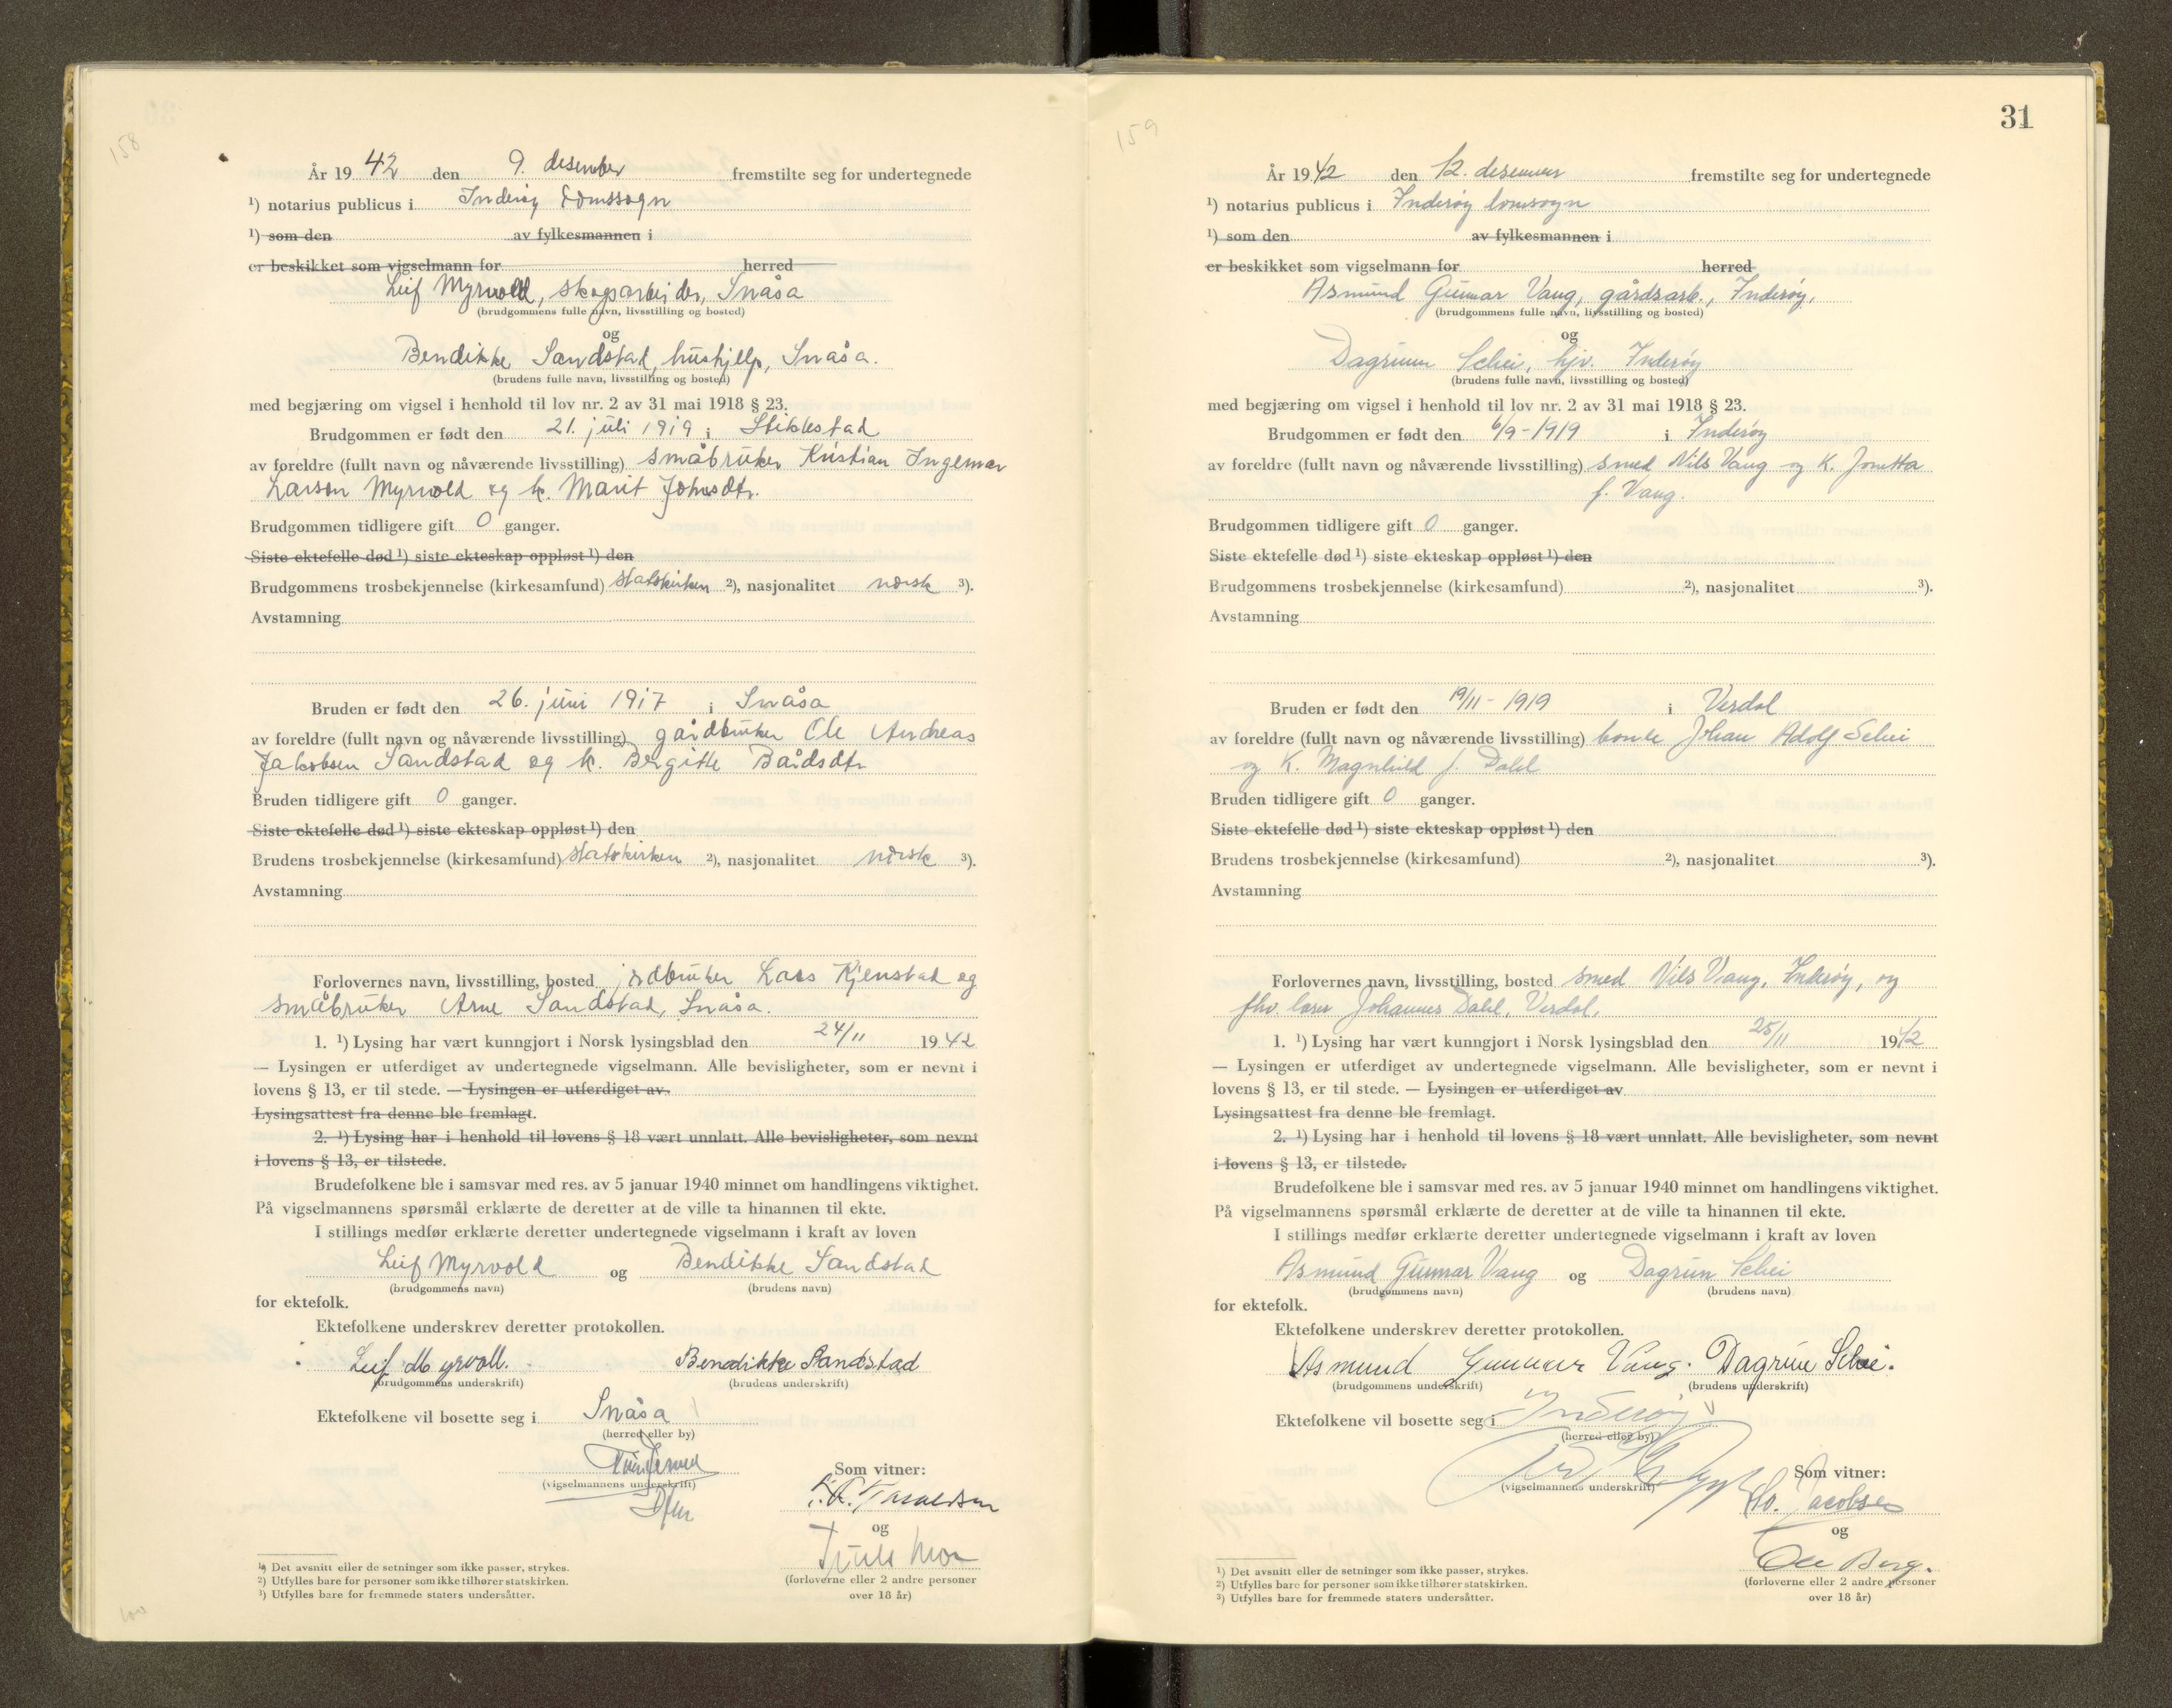 158
År 19 42 den 9. desember fremstilte seg for undertegnede
¹) notarius publicus i Inderøy domssogn
¹) som den av fylkesmannen i
er beskikket som vigselmann for herred
Leif Myrvold, skogsarbeider, Snåsa
(brudgommens fulle navn, livsstilling og bosted)
og
Bendikke Sandstad, hushjelp, Snåsa.
(brudens fulle navn, livsstilling og bosted)
med begjæring om vigsel i henhold til lov nr. 2 av 31 mai 1918 § 23.
Brudgommen er født den 21. juli 1919 i Stiklestad
av foreldre (fullt navn og nåværende livsstilling) småbruker Kristian Ingemar
Larsen Myrvold og h. Marit Johsdtr.
Brudgommen tidligere gift 0 ganger.
Siste ektefelle død ¹) siste ekteskap oppløst ¹) den
Brudgommens trosbekjennelse (kirkesamfund) statskirken ²), nasjonalitet norsk ³).
Avstamning
Bruden er født den 26. juni 1917 i Snåsa
av foreldre (fullt navn og nåværende livsstilling) gårdbruker Ole Andreas
Jakobsen Sandstad og h. Bergitte Bårdsdtr
Bruden tidligere gift 0 ganger.
Siste ektefelle død ¹) siste ekteskap oppløst ¹) den
Brudens trosbekjennelse (kirkesamfund) statskirken ²), nasjonalitet norsk ³).
Avstamning
Forlovernes navn, livsstilling, bosted jordbruker Lars Kjenstad og
småbruker Arne Sandstad, Snåsa.
1. ¹) Lysing har vært kunngjort i Norsk lysingsblad den 24/11 19 42
— Lysingen er utferdiget av undertegnede vigselmann. Alle bevisligheter, som er nevnt i
lovens § 13, er til stede. — Lysingen er utferdiget av
Lysingsattest fra denne ble fremlagt.
2. ¹) Lysing har i henhold til lovens § 18 vært unnlatt. Alle bevisligheter, som nevnt
i lovens § 13, er tilstede.
Brudefolkene ble i samsvar med res. av 5 januar 1940 minnet om handlingens viktighet.
På vigselmannens spørsmål erklærte de deretter at de ville ta hinannen til ekte.
I stillings medfør erklærte deretter undertegnede vigselmann i kraft av loven
Leif Myrvold og Bendikke Sandstad
(brudgommens navn) (brudens navn)
for ektefolk.
Ektefolkene underskrev deretter protokollen.
Leif Myrvoll. Bendikke Sandstad
(brudgommens underskrift) (brudens underskrift)
Ektefolkene vil bosette seg i Snåsa
(herred eller by)
Som vitner:
(vigselmannens underskrift)
og
(forloverne eller 2 andre personer
over 18 år)
¹) Det avsnitt eller de setninger som ikke passer, strykes.
²) Utfylles bare for personer som ikke tilhører statskirken.
³) Utfylles bare for fremmede staters undersåtter.
31
159
År 19 42 den 12. desember fremstilte seg for undertegnede
¹) notarius publicus i Inderøy domsogn
¹) som den av fylkesmannen i
er beskikket som vigselmann for herred
Asmund Gunnar Vang, gårdsarb., Inderøy,
(brudgommens fulle navn, livsstilling og bosted)
og
Dagrunn Schei, hjv. Inderøy
(brudens fulle navn, livsstilling og bosted)
med begjæring om vigsel i henhold til lov nr. 2 av 31 mai 1918 § 23.
Brudgommen er født den 6/9 - 1919 i Inderøy
av foreldre (fullt navn og nåværende livsstilling) smed Nils Vang og K. Jonetta
f. Vang.
Brudgommen tidligere gift 0 ganger.
Siste ektefelle død ¹) siste ekteskap oppløst ¹) den
Brudgommens trosbekjennelse (kirkesamfund) ²), nasjonalitet ³).
Avstamning
Bruden er født den 19/11 - 1919 i Verdal
av foreldre (fullt navn og nåværende livsstilling) bonde Johan Adolf Schei
og K. Magnhild f. Dahl
Bruden tidligere gift 0 ganger.
Siste ektefelle død ¹) siste ekteskap oppløst ¹) den
Brudens trosbekjennelse (kirkesamfund) ²), nasjonalitet ³).
Avstamning
Forlovernes navn, livsstilling, bosted smed Nils Vang, Inderøy, og
fhv. lærer Johannes Dahl, Verdal,
1. ¹) Lysing har vært kunngjort i Norsk lysingsblad den 25/11 19 42
— Lysingen er utferdiget av undertegnede vigselmann. Alle bevisligheter, som er nevnt i
lovens § 13, er til stede. — Lysingen er utferdiget av
Lysingsattest fra denne ble fremlagt.
2. ¹) Lysing har i henhold til lovens § 18 vært unnlatt. Alle bevisligheter, som nevnt
i lovens § 13, er tilstede.
Brudefolkene ble i samsvar med res. av 5 januar 1940 minnet om handlingens viktighet.
På vigselmannens spørsmål erklærte de deretter at de ville ta hinannen til ekte.
I stillings medfør erklærte deretter undertegnede vigselmann i kraft av loven
Asmund Gunnar Vang og Dagrun Schei
(brudgommens navn) (brudens navn)
for ektefolk.
Ektefolkene underskrev deretter protokollen.
Asmund Gunnar Vang. Dagrun Schei.
(brudgommens underskrift) (brudens underskrift)
Ektefolkene vil bosette seg i Inderøy
(herred eller by)
Som vitner:
(vigselmannens underskrift)
Jacobsen
og
Ole Berg.
(forloverne eller 2 andre personer
over 18 år)
¹) Det avsnitt eller de setninger som ikke passer, strykes.
²) Utfylles bare for personer som ikke tilhører statskirken.
³) Utfylles bare for fremmede staters undersåtter.